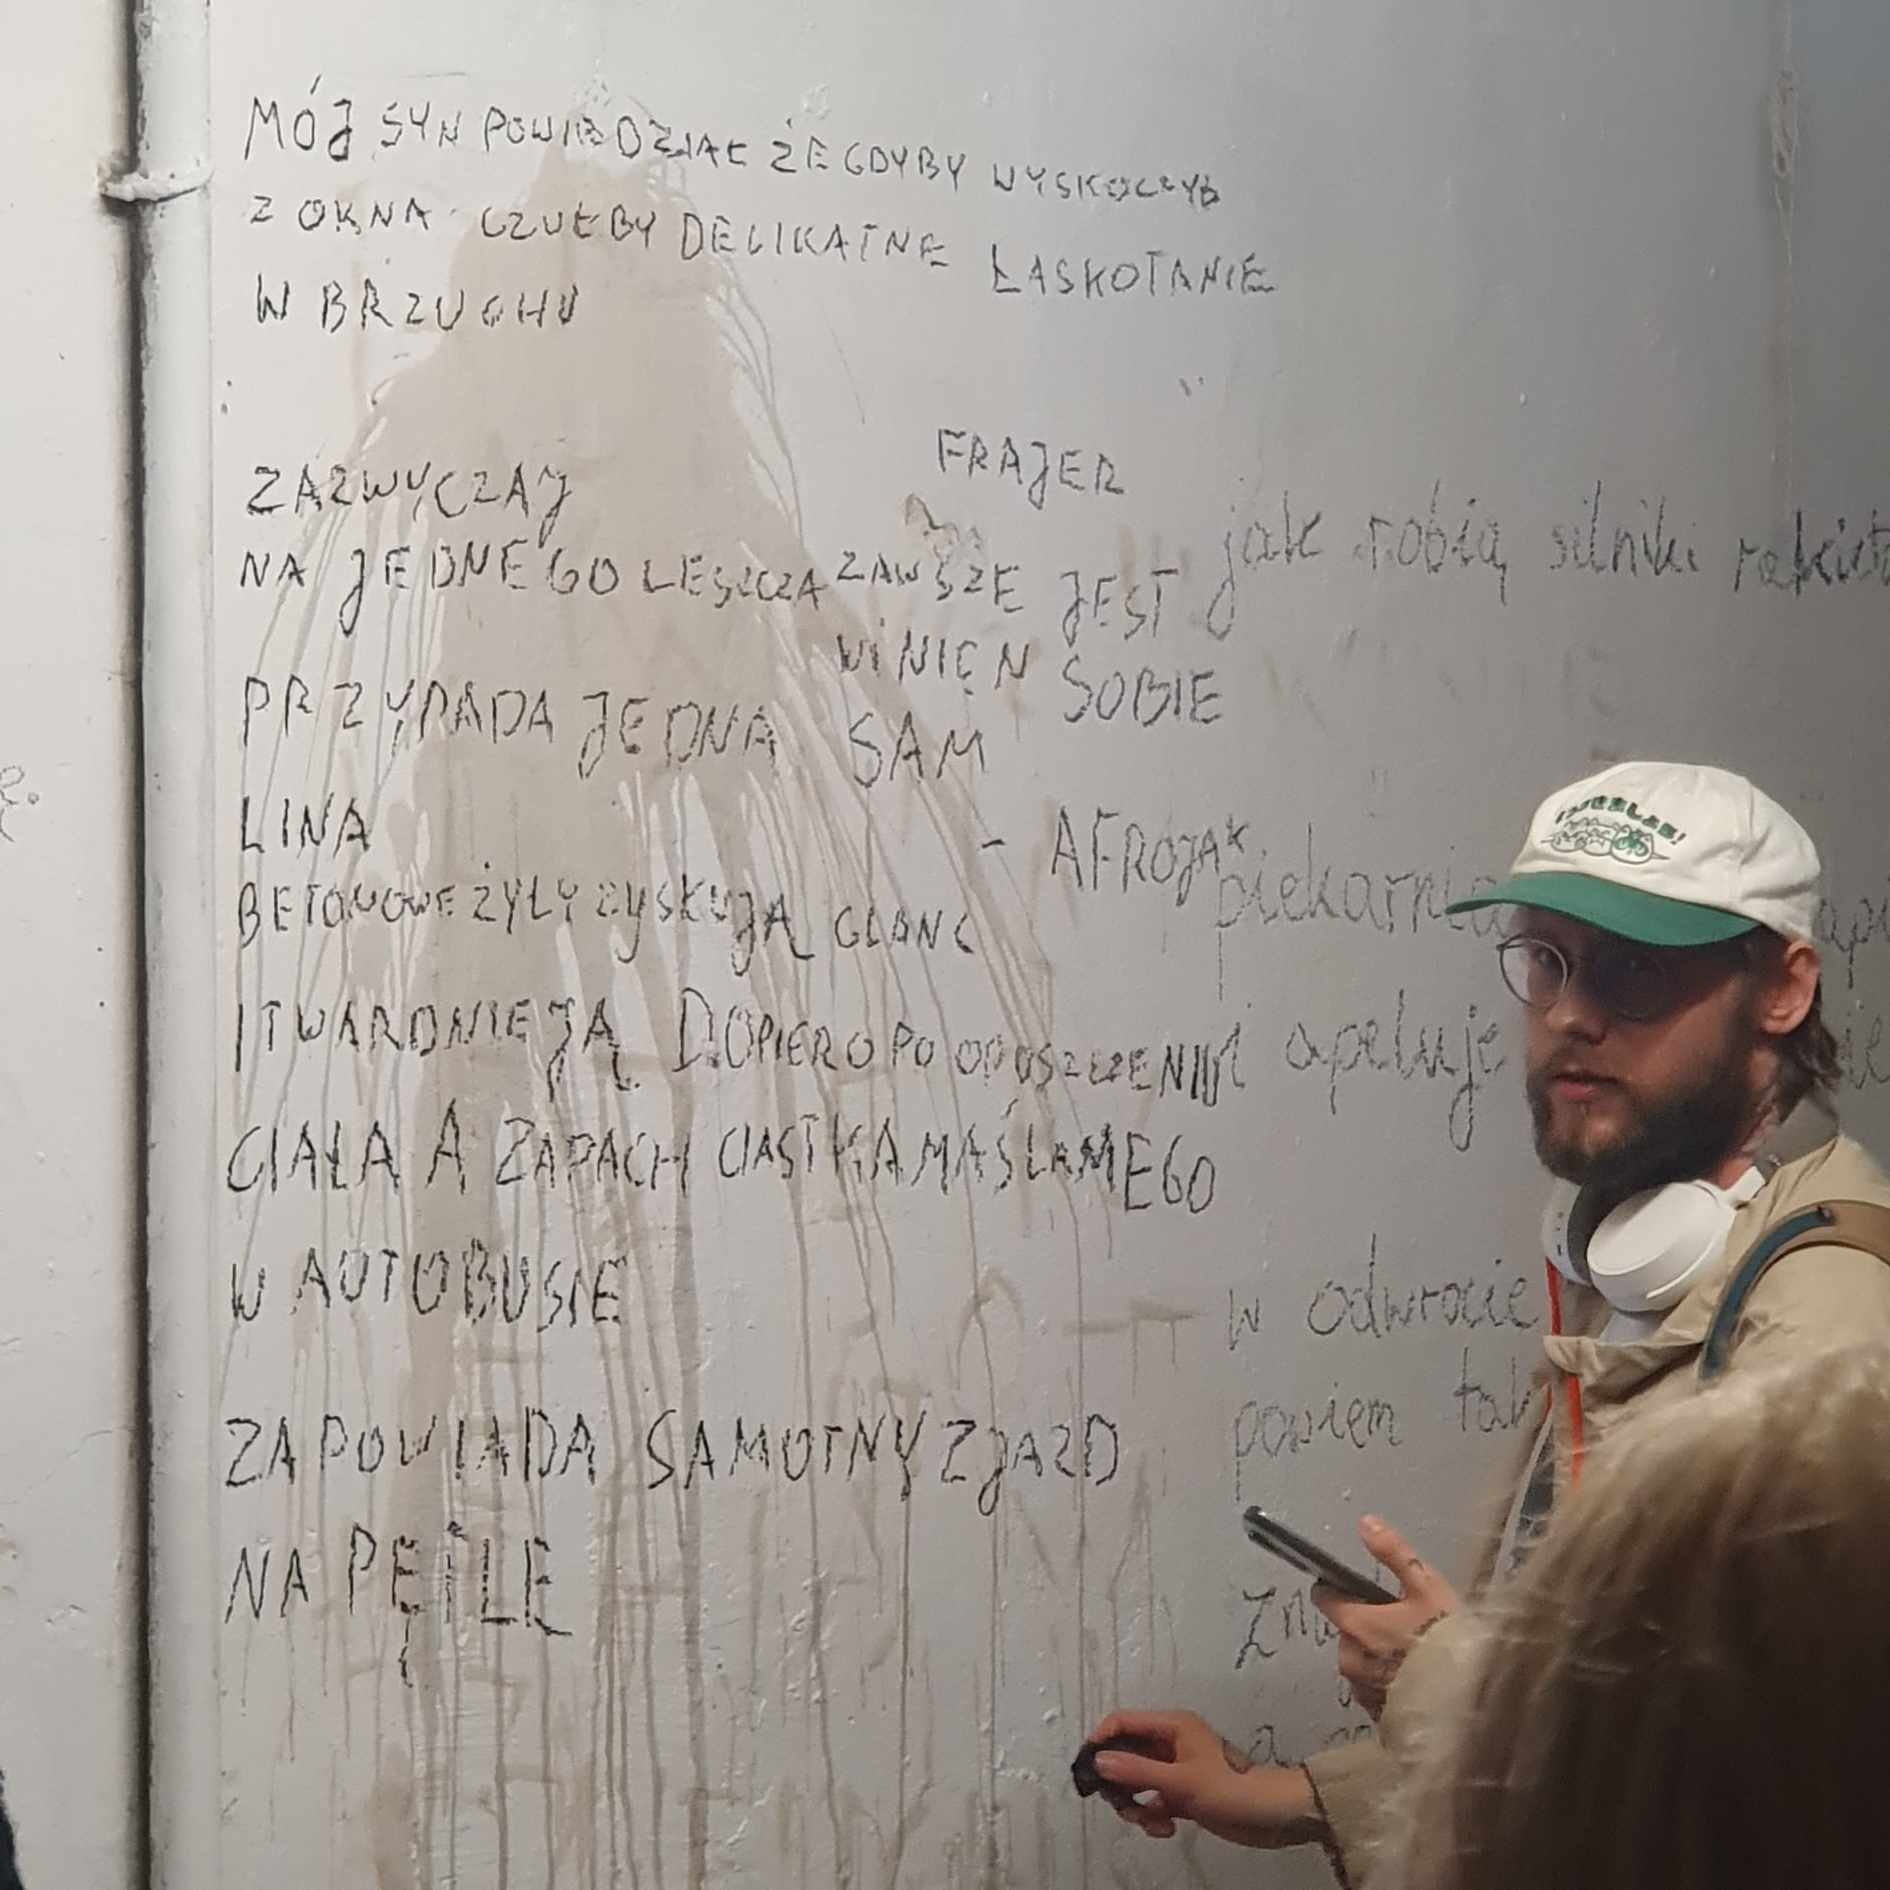 MÓJ SYN POWIEDZIAŁ ŻE GDYBY WYSKOCZYŁ
Z OKNA CZUŁBY DELIKATNE ŁASKOTANIE
W BRZUCHU
ZAZWYCZAJ
NA JEDNEGO LESZCZA
PRZYPADA JEDNA
LINA
FRAJER
ZAWSZE JEST
WINIEN SOBIE
SAM
- AFROJAK
BETONOWE ŻYŁY ZYSKUJĄ GLANC
I TWARDNIEJĄ DOPIERO PO OPUSZCZENIU
CIAŁA A ZAPACH CIASTKA MAŚLANEGO
W AUTOBUSIE
ZAPOWIADA SAMOTNY ZJAZD
NA PĘTLE
jak robią silniki
piekarnia
i apeluje
w odwrocie
powiem